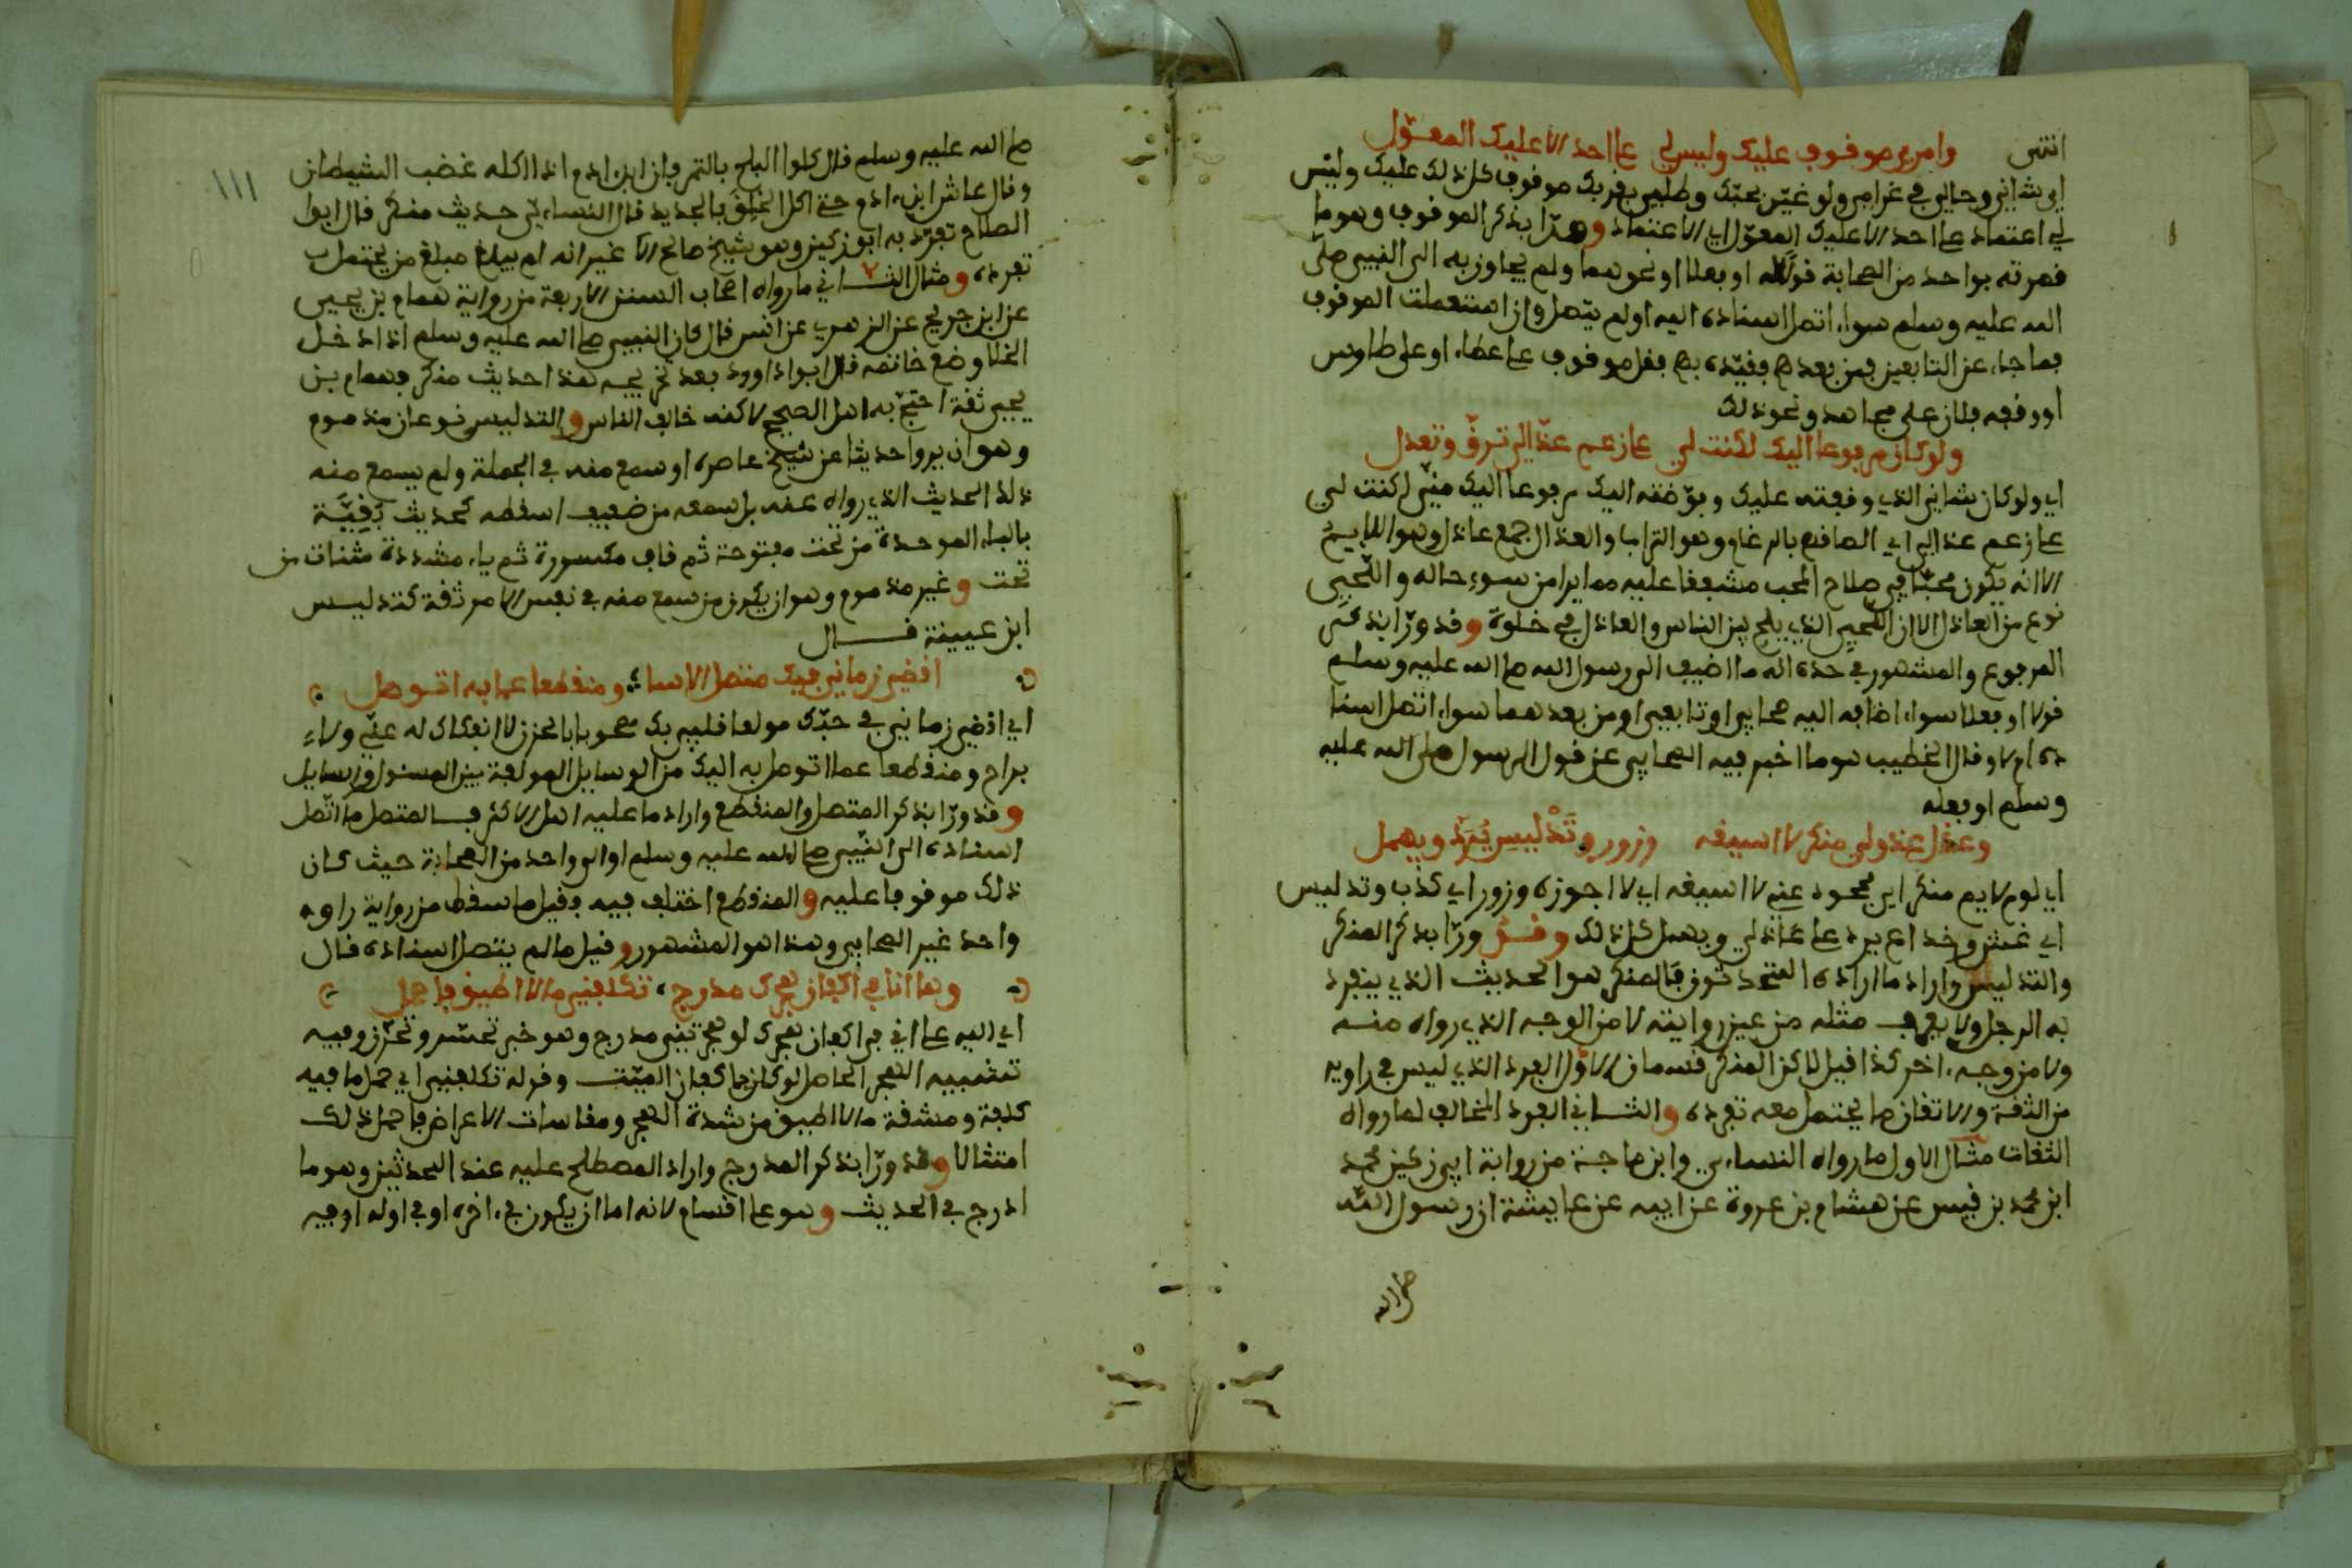 انتهى وامري موقوف عليك وليس لي على احد الا عليك المعول
اي شاني وحالي في غرامي ولوعتي بحبك وطلبي بقربك موقوف كل ذلك عليك وليس
لي اعتماد على احد الا عليك المعول اي الاعتماد وهذا بذكر الموقوف وهو ما
قصرته بواحد من الصحابة قولا له او فعلا او نحوهما ولم يجاوز به الى النبي صلى
الله عليه وسلم سواء اتصل اسناده اليه او لم يتصل وان استعملت الموقوف
فيما جاء عن التابعين فمن بعدهم فقيده بهم فقل موقوف على عطاء او على طاوس
او وقفه فلان على مجاهد ونحو ذلك
ولو كان مرفوعا اليك لكنت لي على رغم عذالي ترق وتعدل
اي ولو كان شاني الذي وقفته عليك وفوضته اليك مرفوعا اليك مني لكنت لي
على رغم عذالي اي الصاقهم بالرغام وهو التراب والعذال جمع عاذل وهو اللايم
الا انه يكون محبا في صلاح المحب مشفقا عليه مما يرا من سوء حاله واللحيي
نوع من العاذل الا ان اللحيي الذي يلح بين الناس والعاذل في خلوة وقد ورا بذكر
المرفوع والمشهور في حده انه ما اضيف الى رسول الله صلى الله عليه وسلم
قولا او فعلا سواء اضافه اليه صحابي او تابعي او من بعدهما سواء اتصل اسنا
ده ام لا وقال الخطيب هو ما اخبر فيه الصحابي عن قول الرسول صلى الله عليه
وسلم او فعله
وعذل عذولي منكر لا اسيغه وزور وتدليس يرد ويهمل
اي لوم لايم منكر اي مجحود عني لا اسيغه اي لا اجوزه وزور اي كذب وتدليس
اي غش وخداع يرد على عاذلي ويهمل كل ذلك وقد ورا بذكر المنكر
والتدليس واراد ما اراده المحدثون فالمنكر هو الحديث الذي ينفرد
به الرجل ولا يعرف مثله من غير روايته لا من الوجه الذي رواه منه
ولا من وجه ءاخر كذا قيل لاكن المنكر قسمان الاول الفرد الذي ليس في راويه
من الثقة والاتقان ما يحتمل معه تفرده والثاني الفرد المخالف لما رواه
الثقات مثال الاول ما رواه النساءي وابن ماجة من رواية ابي زكير محمد
ابن محمد بن قيس عن هشام بن عروة عن ابيه عن عايشة ان رسول الله
صلى الله
١١١
صلى الله عليه وسلم قال كلوا البلح بالتمر فان ابن ءادم اذا اكله غضب الشيطان
وقال عاش ابن ءادم حتى اكل الخلق بالجديد قال النساءي حديث منكر قال ابوا
الصلاح تفرد به ابو زكير وهو شيخ صالح الا غير انه لم يبلغ مبلغ من يحتمل ب
تفرده ومثال الثاني ما رواه اصحاب السنن الاربعة من رواية همام بن يحيى
عن ابن جريج عن الزهري عن انس قال كان النبي صلى الله عليه وسلم اذا دخل
الخلا وضع خاتمه قال ابو داوود بعد تخريجه هذا حديث منكر فهمام بن
يحيى ثقة احتج به اهل الصحيح لاكنه خالف الناس والتدليس نوعان مذموم
وهو ان يروا حديثا عن شيخ عاصره او سمع منه في الجملة ولم يسمع منه
ذلك الحديث الذي رواه عنه بل سمعه من ضعيف اسقطه كحديث بقية
بالباء الموحدة من تحت مفتوحة ثم قاف مكسورة ثم ياء مشددة مثنات من
تحت وغير مذموم وهو ان يكون من سمع منه في نفس الامر ثقة كتدليس
ابن عيينة قال
اقضي زماني فيك متصل الاسا ومنقطعا عما به اتوصل
اي اقضي زماني في حبك مولعا قلبي بك مصحوبا بالحزن لا انفكاك له عني ولاء
براح ومنقطعا عما اتوصل به اليك من الوسايل المولفة بين المسئول والسايل
وقد ورا بذكر المتصل والمنقطع واراد ما عليه اهل الاكثر فالمتصل ما اتصل
اسناده الى النبي صلى الله عليه وسلم او الى واحد من الصحابة حيث كان
ذلك موقوفا عليه والمنقطع اختلف فيه فقيل ما سقط من رواية راويه
واحد غير الصحابي وهذا هو المشهور وقيل ما لم يتصل اسناده قال
وها انا في اكفان هجرك مدرج تكلفني ما لا اطيق فاحمل
اي اليه على اني في اكفان هجرك لو هجرتني مدرج وهو خبر تحسر وتحزن وفيه
تشبيه الهجر الحاصل لو كان باكفان الميت وقوله تكلفني اي حمل ما فيه
كلفة ومشقة ما لا اطيق من شدة الهجر ومقاسات الاعراض فاحمل ذلك
امتثالا وقد ورا بذكر المدرج واراد المصطلح عليه عند المحدثين وهو ما
ادرج في الحديث وهو على اقسام لانه اما ان يكون في ءاخره او في اوله او فيه